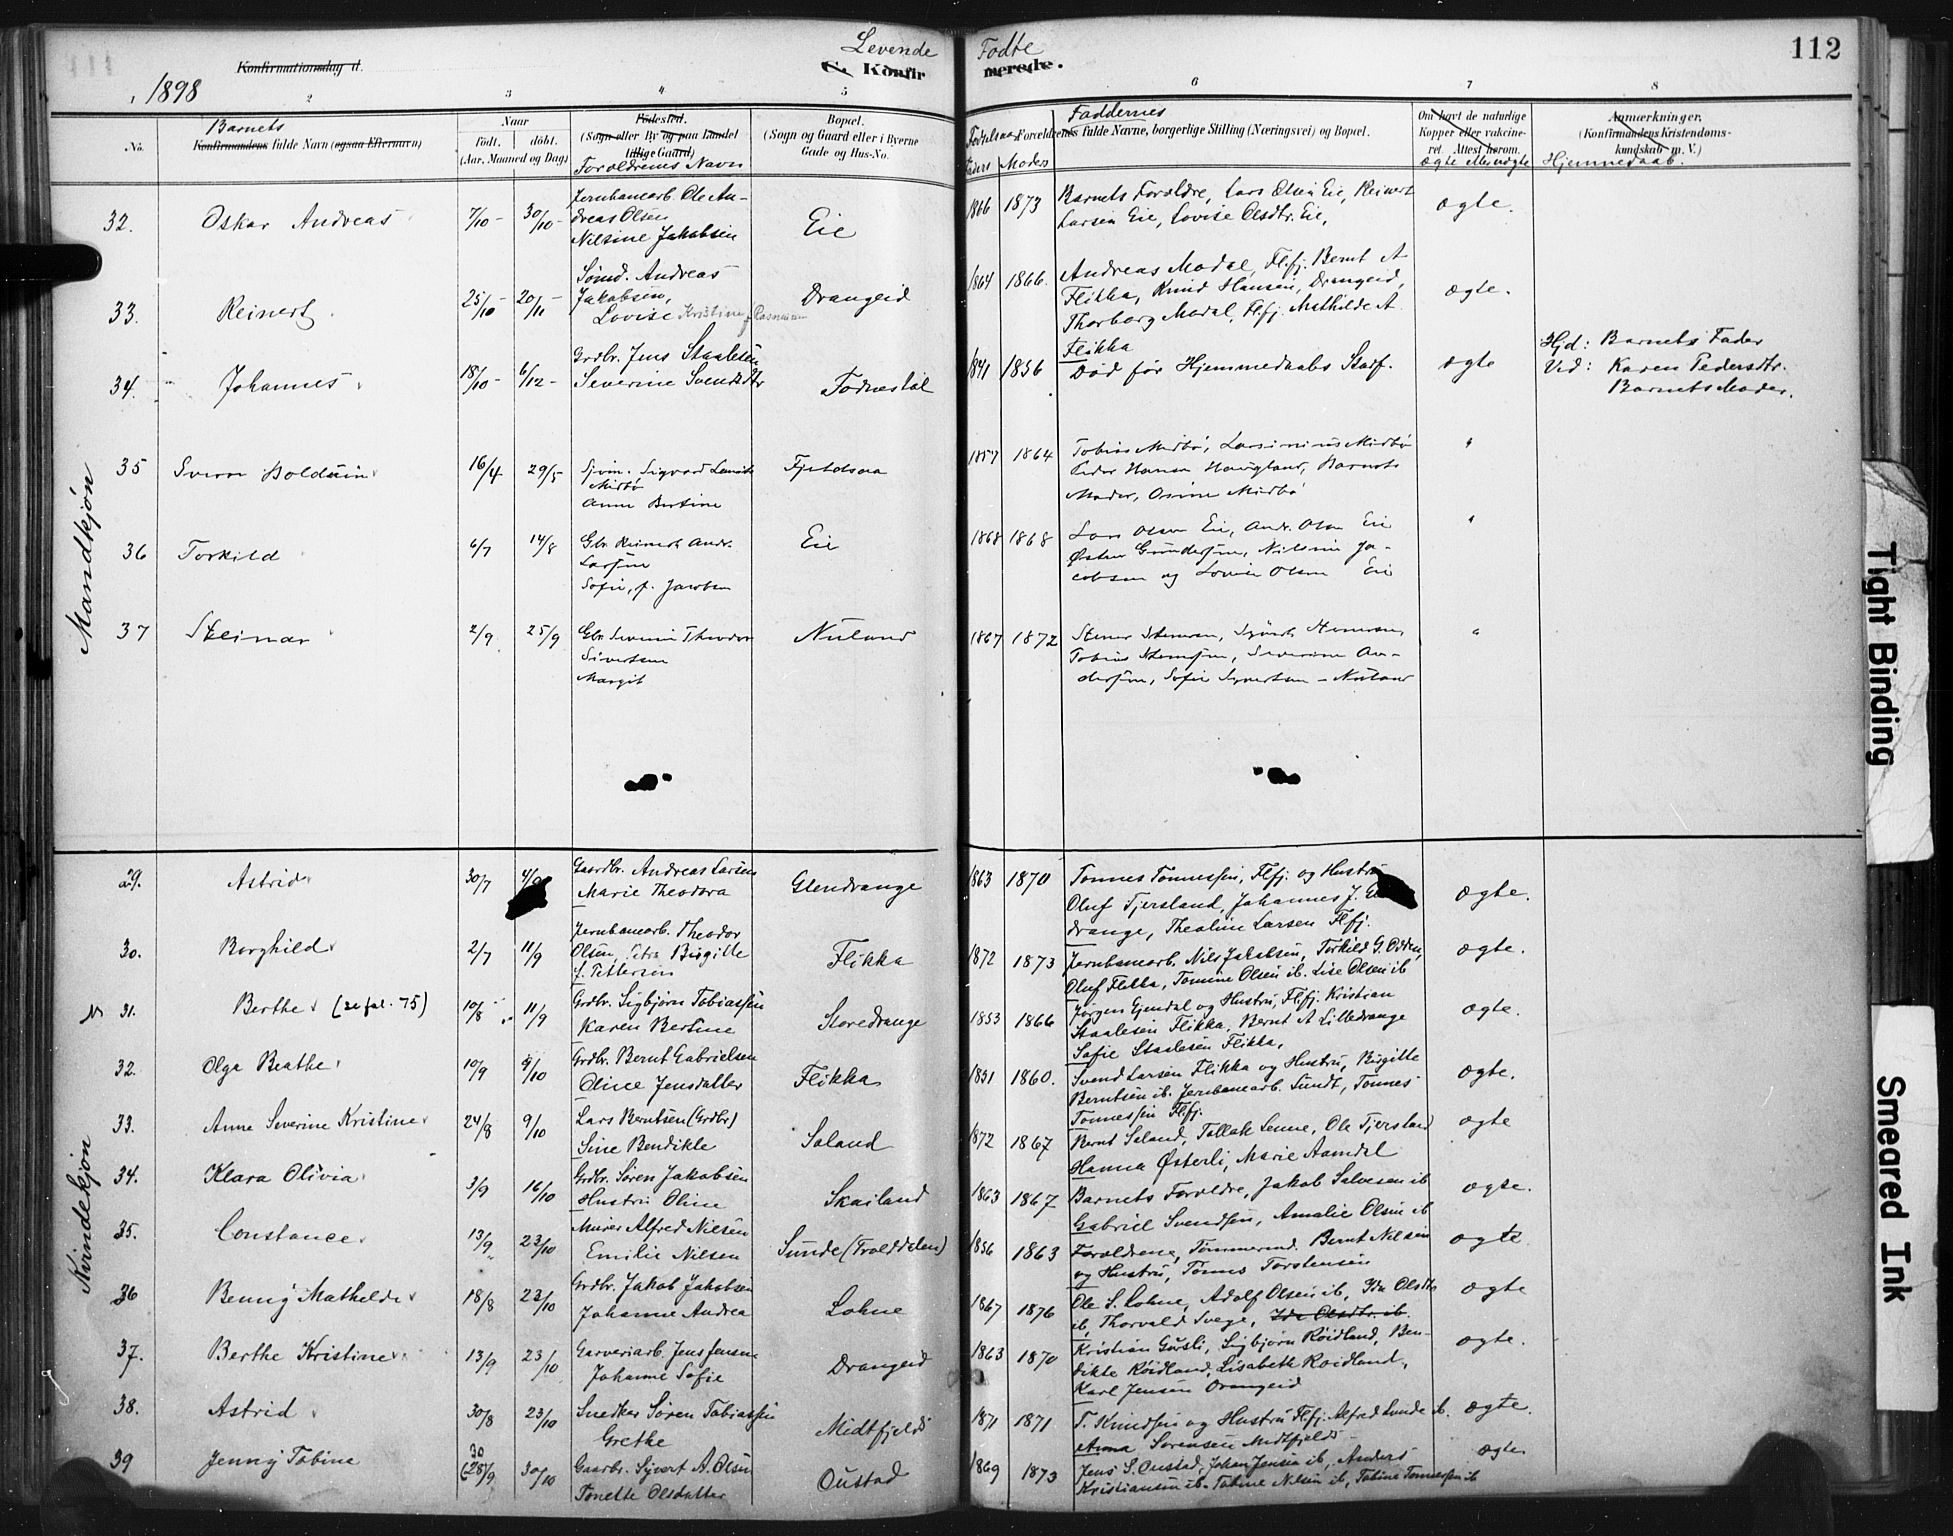 Levende Fodte
112
1898
Konfirmationsdag d.
C. Konfirmerede.
1 2 3 4 5 6 7 8
No.
Barnets
Konfirmandens fulde Navn (ogsaa Efternavn)
Naar
födt. döbt.
(Aar, Maaned og Dag)
Födested.
(Sogn eller By og paa Landet
tillige Gaard)
Foroldrenes Navn
Bopæl.
(Sogn og Gaard eller i Byerne
Gade og Hus-No.
Faders Moders
Faddernes
Forældrenes fulde Navne, borgerlige Stilling (Næringsvei) og Bopæl.
Om havt de naturlige
Kopper eller vakcineret. Attest herom.
ægte eller uægte
Anmærkninger.
(Konfirmandens Kristendomskundskab m. V.)
Hjemmedaab.
Mandkjøn
32. Oskar Andreas 7/10 - 30/10 - Jernbanearb. Ole An-
dreas Olsen
Nilsine Jakobsen
Eie 1866 1873 Barnets Foroldre, Lars Olsen Eie, Reinert
Larsen Eie, Lovise Olsdtr. Eie,
ægte.
33. Reinert 25/10 - 20/11 - Sømd. Andreas
Jakobsen,
Lovise Kristine f. Rasmussen
Drangeid 1864 1866. Andreas Modal, Flfj. Bernt A
Flikka, Knud Hansen, Drangeid,
Thorborg Modal, Flfj. Mathilde A
Flikka
ægte.
34. Johannes 18/10 - 6/12 - Grdbr. Jens Staalesen
Severine Svendsdtr
1841 1856 Død før Hjemmedaabs Stadf.
ægte
Hjd: Barnets Fader
Vid: Karen Pedersdtr.
Barnets Moder.
35 16/4 29/5
Midbø
Fjeldsaa 1857 1864 Tobias Midbø,
Peder Hansen Haugland, Barnets
Moder, Midbø
"
36 Torkild 6/7 14/8 Gbr. Reinert Andr.
Larsen
Sofie, f. Jacobsen
Eie 1868 1868 Lars Olsen Eie, Andr. Olsen Eie
Østen Gundersen, Nilsine Ja-
cobsen og Lovise Olsen Eie
"
37 Steinar 2/9 25/9 Gbr. Theodor
Sivertsen
Margit
Nuland 1867 1872
Tobias Severine An-
dersen, Sofie Syvertsen - Nuland
"
Kvindekjøn
29. Astrid 30/7 Gaardbr. Andreas Larsen
Marie Theodora
Glendrange 1863 1870 Tønnes Tønnessen, Flfj. og Hustru
Oluf Tjersland, Johannes J.
drange, Thealine Larsen Flfj.
ægte.
30. Borghild 2/7 11/9 Jernbanearb. Theodor
Olsen, Petra Birgitte
f. Pettersen
Flikka 1872 1873 Jernbanearb. Nils Jakobsen, Torkild G. Odden,
Oluf Flikka, Tomine Olsen ib. Lise Olsen ib
ægte.
31. Berthe (se fol. 75) 10/8 11/9 Grdbr. Sigbjørn Tobiassen
Karen Bertine
Storedrange 1853 1866 Jørgen Gjendal og Hustru, Flfj. Kristian
Staalesen Flikka, Bernt A Lilledrange
Sofie Staalesen Flikka,
ægte.
32. Olga Beathe 10/9 9/10 Grdbr. Bernt Gabrielsen
Oline Jensdatter
Flikka 1851 1860. Svend Larsen Flikka og Hustru, Birgitte
Berntsen ib. Jernbanearb. Sundt, Tønnes
Tønnessen Flfj.
ægte.
33. Anne Severine Kristine 24/8 9/10 Lars Berntsen (Grdbr)
Sine Bendikte
Soland 1872 1867 Bernt Soland, Tallak Lenne, Ole Tjersland
Hanna Østerli, Marie Aamdal
ægte
34. Klara Olivia 3/9 16/10 Grdbr. Søren Jakobsen
Hustru Oline
Skailand 1863 1867 Barnets Foroldre, Jakob Salvesen ib
Gabriel Svendsen, Amalie Olsen ib
ægte.
35. Constance 13/9 23/10 Murer Alfred Nielsen
Emilie Nilsen
Sunde (Trolddalen) 1856 1863 Foroldrene, Tømmermd. Bernt Nilsen
og Hustru, Tønnes Torstensen
ægte
36 Benny Mathilde 18/8 23/10 Grdbr. Jakob Jakobsen
Johanne Andrea
Lohne 1867 1876 Ole S. Lohne, Adolf Olsen ib, Ida Olsdtr
ib, Thorvald Svege, Ida Olsdtr. ib.
ægte
37. Berthe Kristine 13/9 23/10 Garveriarb Jens Jensen
Johanne Sofie
Drangeid 1863 1870 Kristian Gursli, Sigbjørn Röidland, Ben-
dikte Röidland, Lisabeth Roidland,
Karl Jensen Drangeid
ægte.
38. Astrid 30/8 23/10 Snedker Søren Tobiassen
Grethe
Midtfjeld 1871 1871 T. Knudsen og Hustru Flfj. Alfred Sunde ib.
Anna Sørensen Midtfjeld
ægte.
39 Jenny Tobine 30 (28)/9 30/10 Gaardbr. Sivert A. Olsen
Tonette Olsdatter
Oustad 1869 1873 Jens S. Oustad, Johan Jensen ib, Anders
Kristiansen ib. Tobine Nilsen ib, Tobine Tønnessen ib
ægte
Tight Binding
Smeared Ink